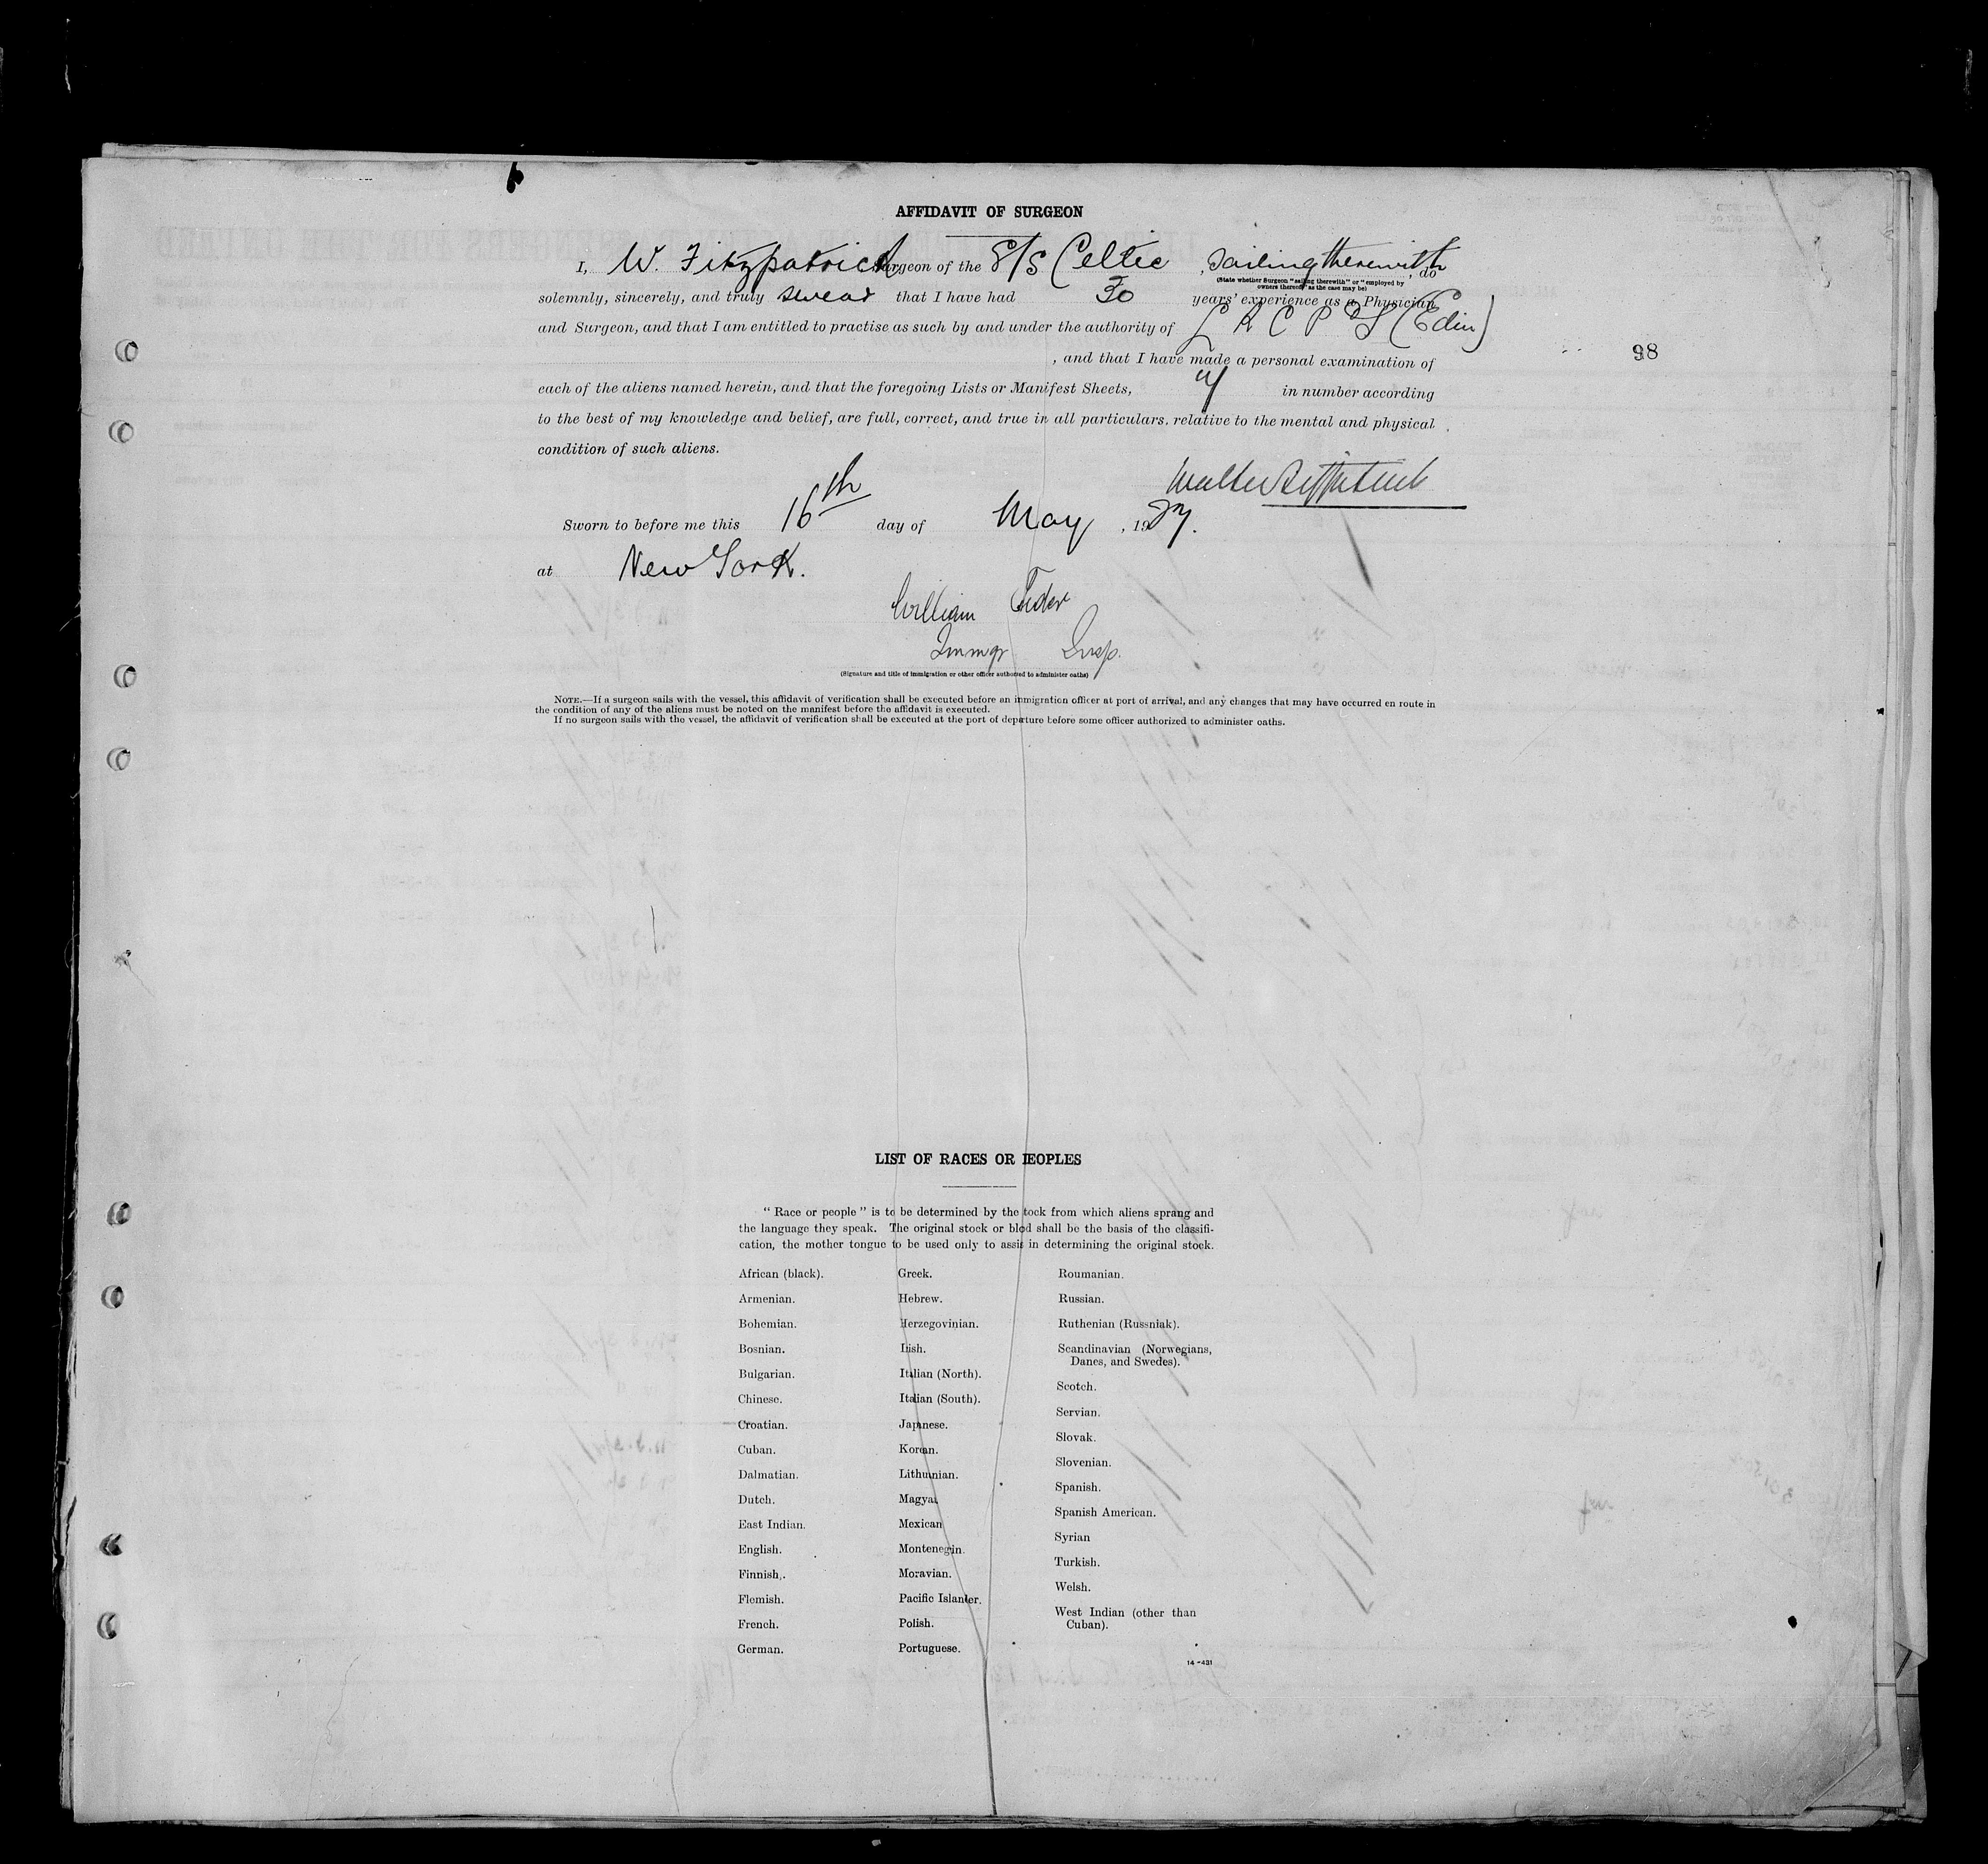 AFFIDAVIT OF SURGEON
I, W. Fitzpatrick Surgeon of the S/S Celtic, sailing therewith, do
(State whether Surgeon "sailing therewith" or "employed by
owners thereof" as the case may be)
solemnly, sincerely, and truly swear that I have had 30 years' experience as a Physician
and Surgeon, and that I am entitled to practise as such by and under the authority of L R C P & S (Edin)
, and that I have made a personal examination of
98
each of the aliens named herein, and that the foregoing Lists or Manifest Sheets, in number according
to the best of my knowledge and belief, are full, correct, and true in all particulars, relative to the mental and physical
condition of such aliens.
Walter Fitzpatrick
Sworn to before me this 16th day of May, 1927.
at New York.
William
Immgr Insp.
(Signature and title of immigration or other officer authorized to administer oaths)
NOTE.—If a surgeon sails with the vessel, this affidavit of verification shall be executed before an immigration officer at port of arrival, and any changes that may have occurred en route in
the condition of any of the aliens must be noted on the manifest before the affidavit is executed.
If no surgeon sails with the vessel, the affidavit of verification shall be executed at the port of departure before some officer authorized to administer oaths.
LIST OF RACES OR PEOPLES
"Race or people" is to be determined by the stock from which aliens sprang and
the language they speak. The original stock or blood shall be the basis of the classifi-
cation, the mother tongue to be used only to assist in determining the original stock.
African (black).
Armenian.
Bohemian.
Bosnian.
Bulgarian.
Chinese.
Croatian.
Cuban.
Dalmatian.
Dutch.
East Indian.
English.
Finnish.
Flemish.
French.
German.
Greek.
Hebrew.
Herzegovinian.
Irish.
Italian (North).
Italian (South).
Japanese.
Korean.
Lithuanian.
Magyar.
Mexican.
Montenegrin.
Moravian.
Pacific Islander.
Polish.
Portuguese.
Roumanian.
Russian.
Ruthenian (Russniak).
Scandinavian (Norwegians,
Danes, and Swedes).
Scotch.
Servian.
Slovak.
Slovenian.
Spanish.
Spanish American.
Syrian
Turkish.
Welsh.
West Indian (other than
Cuban).
14-431